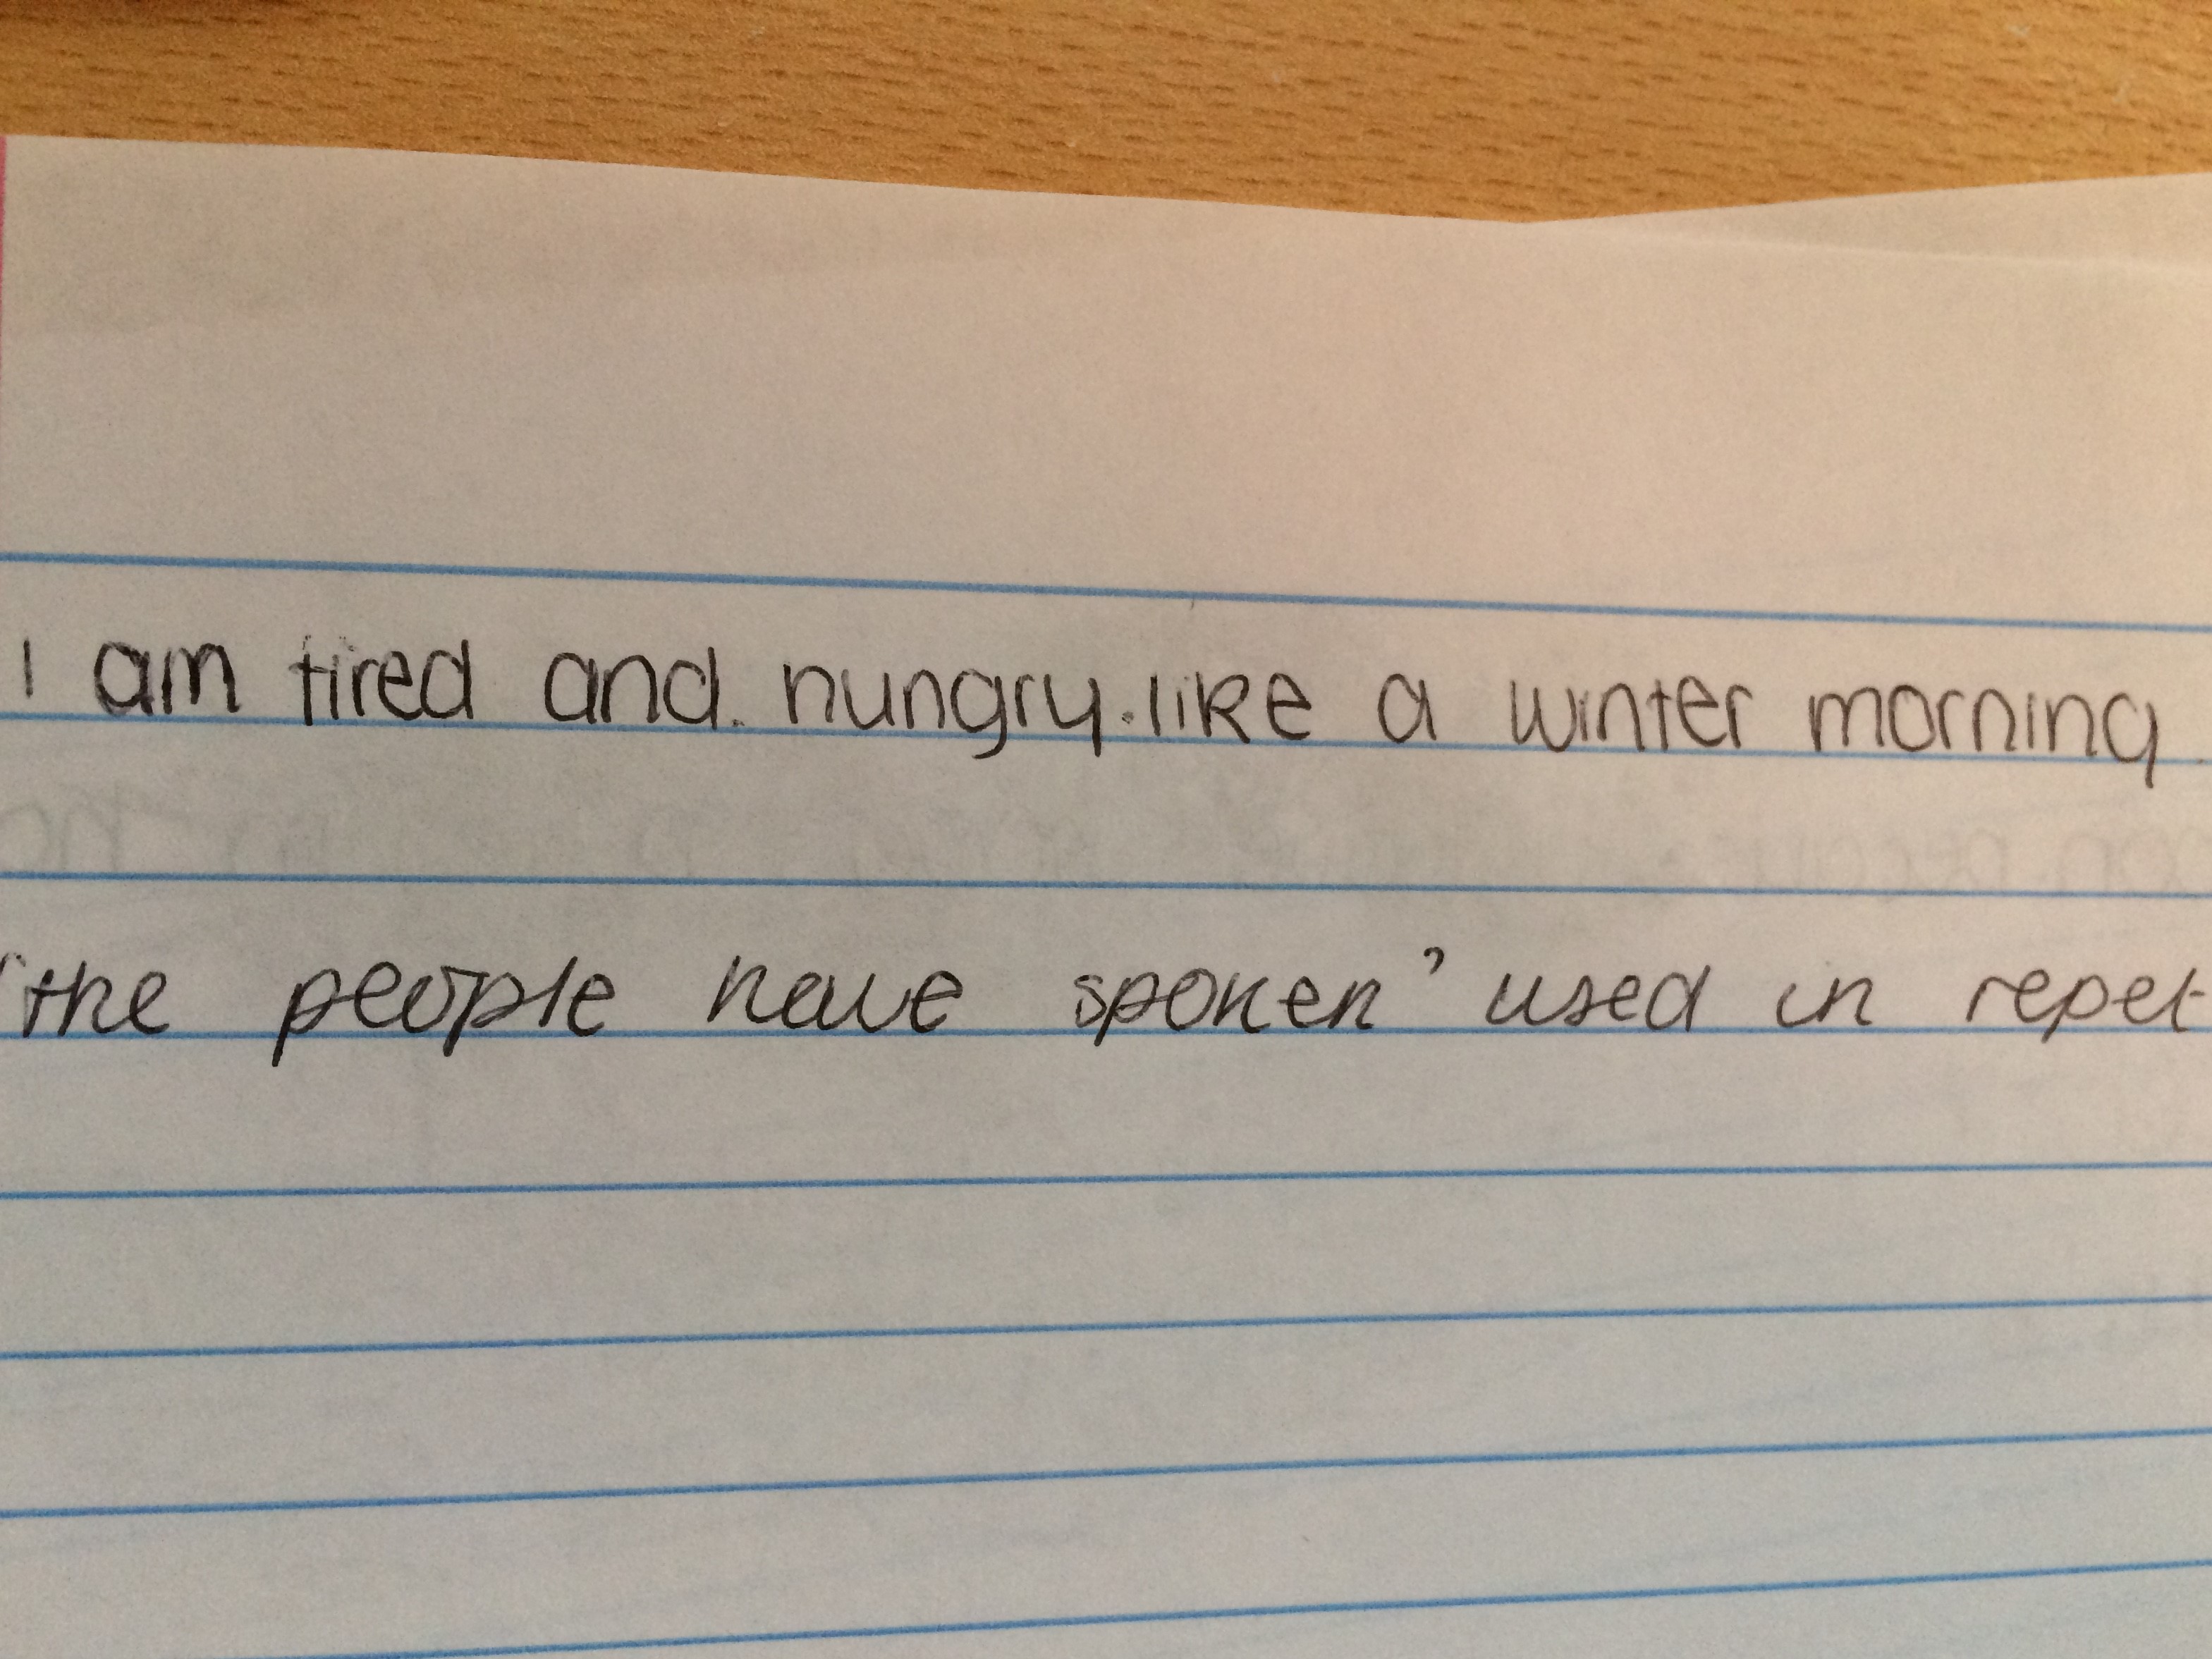 I am tired and. hungry. like a winter morning.
"the people have spoken" used in repet